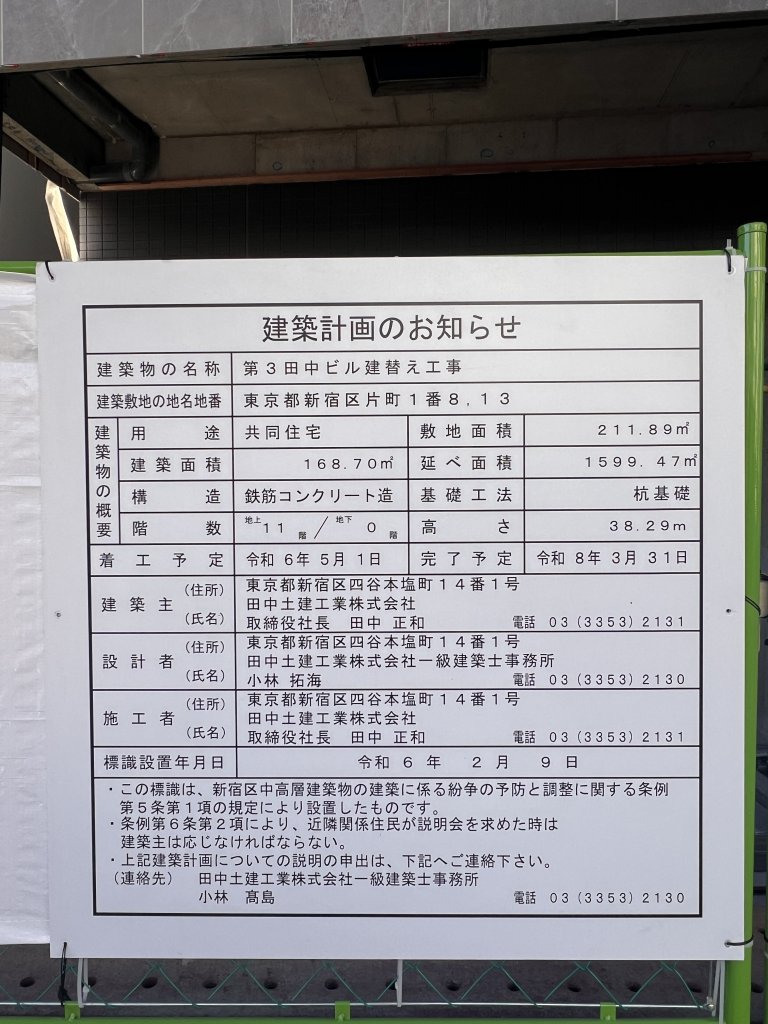 建築計画のお知らせ
建築物の名称 第３田中ビル建替え工事
建築敷地の地名地番 東京都新宿区片町１番８，１３
建築物の概要
用途 共同住宅 敷地面積 ２１１．８９㎡
建築面積 １６８．７０㎡ 延べ面積 １５９９．４７㎡
構造 鉄筋コンクリート造 基礎工法 杭基礎
階数 地上１１階／地下０階 高さ ３８．２９ｍ
着工予定 令和 ６年 ５月 １日 完了予定 令和 ８年 ３月 ３１日
建築主 （住所） 東京都新宿区四谷本塩町１４番１号
田中土建工業株式会社
（氏名） 取締役社長 田中 正和 電話 ０３（３３５３）２１３１
設計者 （住所） 東京都新宿区四谷本塩町１４番１号
田中土建工業株式会社一級建築士事務所
（氏名） 小林 拓海 電話 ０３（３３５３）２１３０
施工者 （住所） 東京都新宿区四谷本塩町１４番１号
田中土建工業株式会社
（氏名） 取締役社長 田中 正和 電話 ０３（３３５３）２１３１
標識設置年月日 令和 ６ 年 ２ 月 ９ 日
・この標識は、新宿区中高層建築物の建築に係る紛争の予防と調整に関する条例
第５条第１項の規定により設置したものです。
・条例第６条第２項により、近隣関係住民が説明会を求めた時は
建築主は応じなければならない。
・上記建築計画についての説明の申出は、下記へご連絡下さい。
（連絡先） 田中土建工業株式会社一級建築士事務所
小林 髙島 電話 ０３（３３５３）２１３０